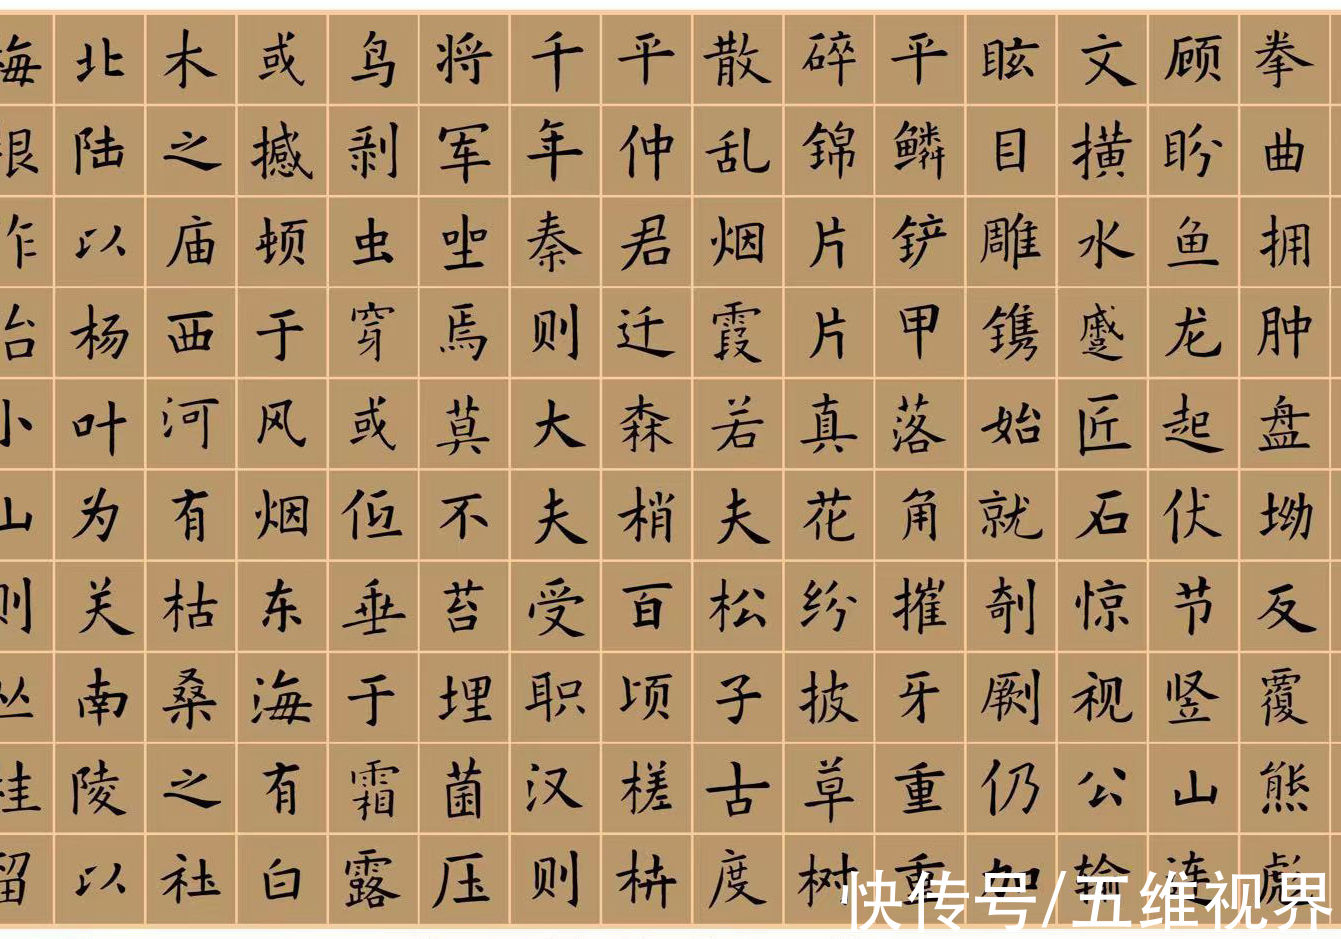 拳曲拥肿盘坳反覆熊彪
顾盼鱼龙起伏节竖山连
文横水蹙匠石惊视公输
眩目雕镌始就剞劂仍加
平鳞铲甲落角摧牙重重
碎锦片片真花纷披草树
散乱烟霞若夫松子古度
平仲君迁森梢百顷槎枿
千年秦则大夫受职汉则
将军坐焉莫不苔埋菌压
鸟剥虫穿或低垂于霜露
或撼顿于风烟东海有白
木之庙西河有枯桑之社
北陆以杨叶为关南陵以
梅根作冶小山则丛桂留
快传号/五维视界